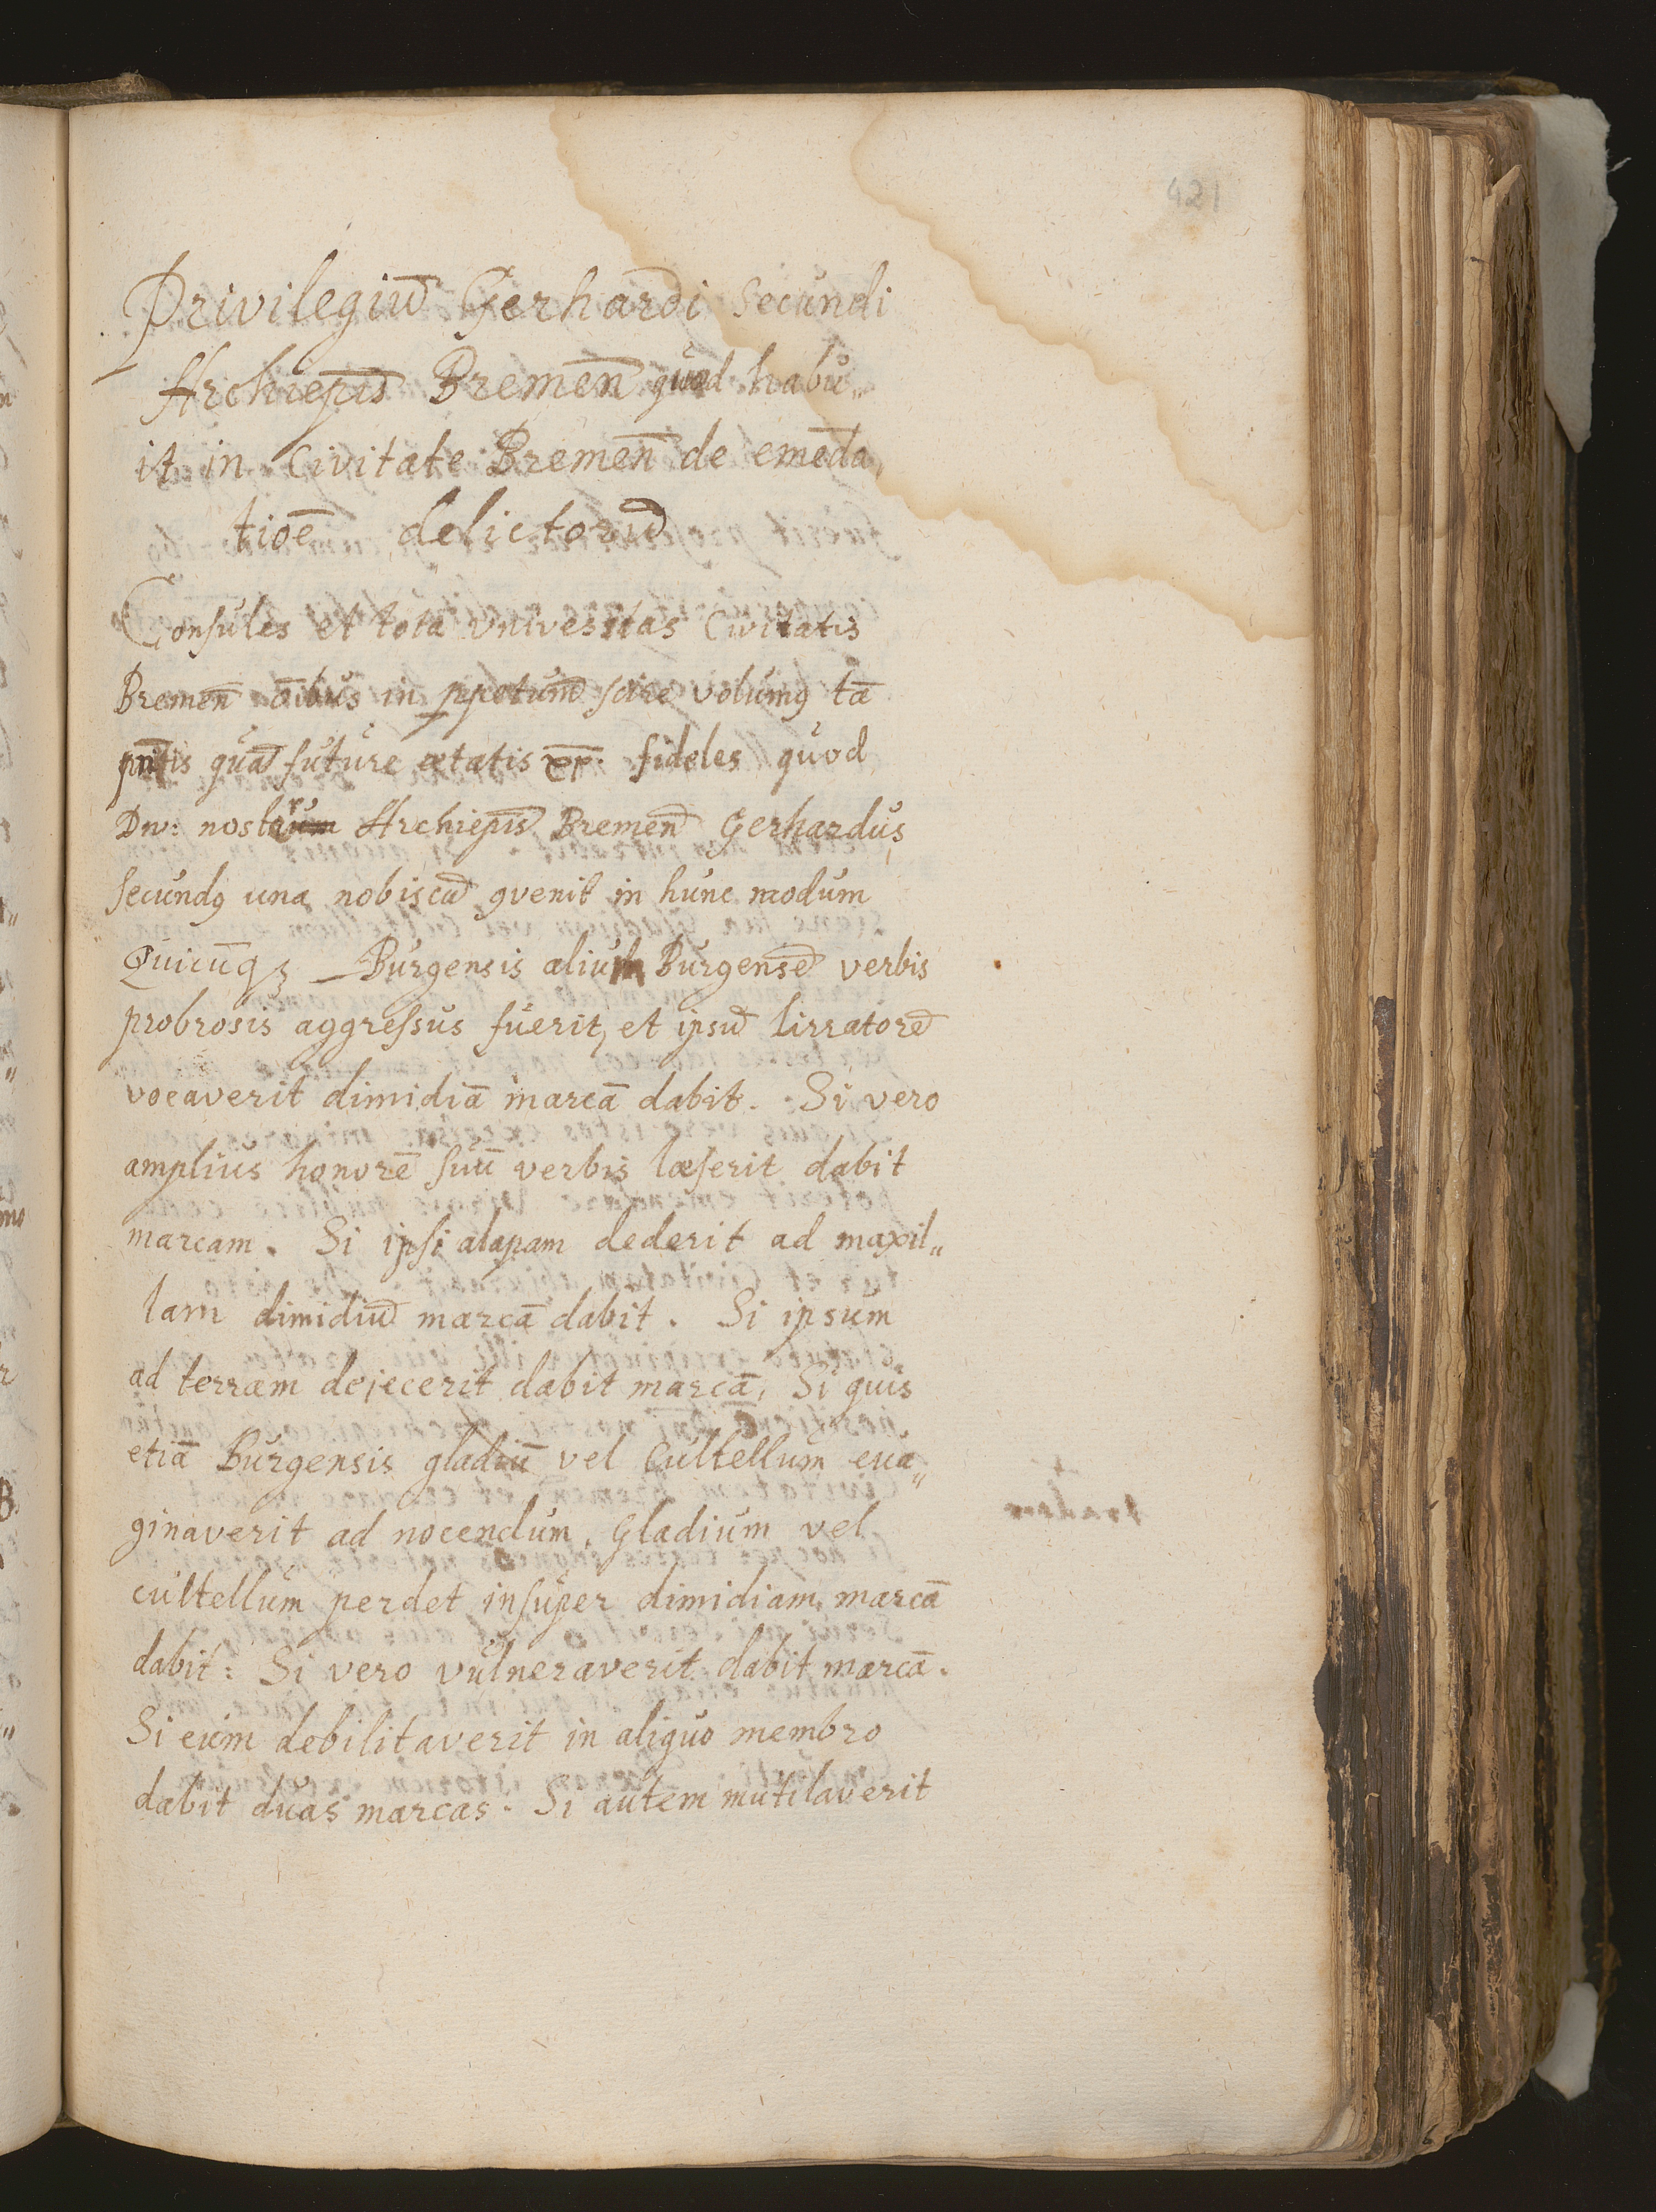 421
Privilegiū Gerhardi Secundi
Archiepis̄ Bremēn quod habu„
it in Civitate Bremēn de emēda„
tioē delictorū
Consules et tota Universitas Civitatis
Bremēn ōibus in ppetuum scire volumꝯ tā
pn̄tis quā future ætatis xp̄. fideles quod
Dn: nostr Archiepis̄ Bremēn Gerhardus
Secundꝯ una nobiscū ꝯvenit in hunc modum
Quicūqꝫ Burgensis alium Burgensē verbis
probrosis aggressus fuerit, et ipsū lirratorē
vocaverit dimidiā marcā dabit. Si vero
amplius honorē suū verbis læserit dabit
marcam. Si ipsi alapam dederit ad maxil„
lam dimidiū marcā dabit. Si ipsum
ad terram dejecerit dabit marcā, Si quis
etiā Burgensis gladiū vel Cultellum eva„
ginaverit ad nocendum, Gladium vel
cultellum perdet insuper dimidiam marcā
dabit: Si vero vulneraverit dabit marcā.
Si eum debilitaverit in aliquo membro
dabit duas marcas. Si autem mutilaverit